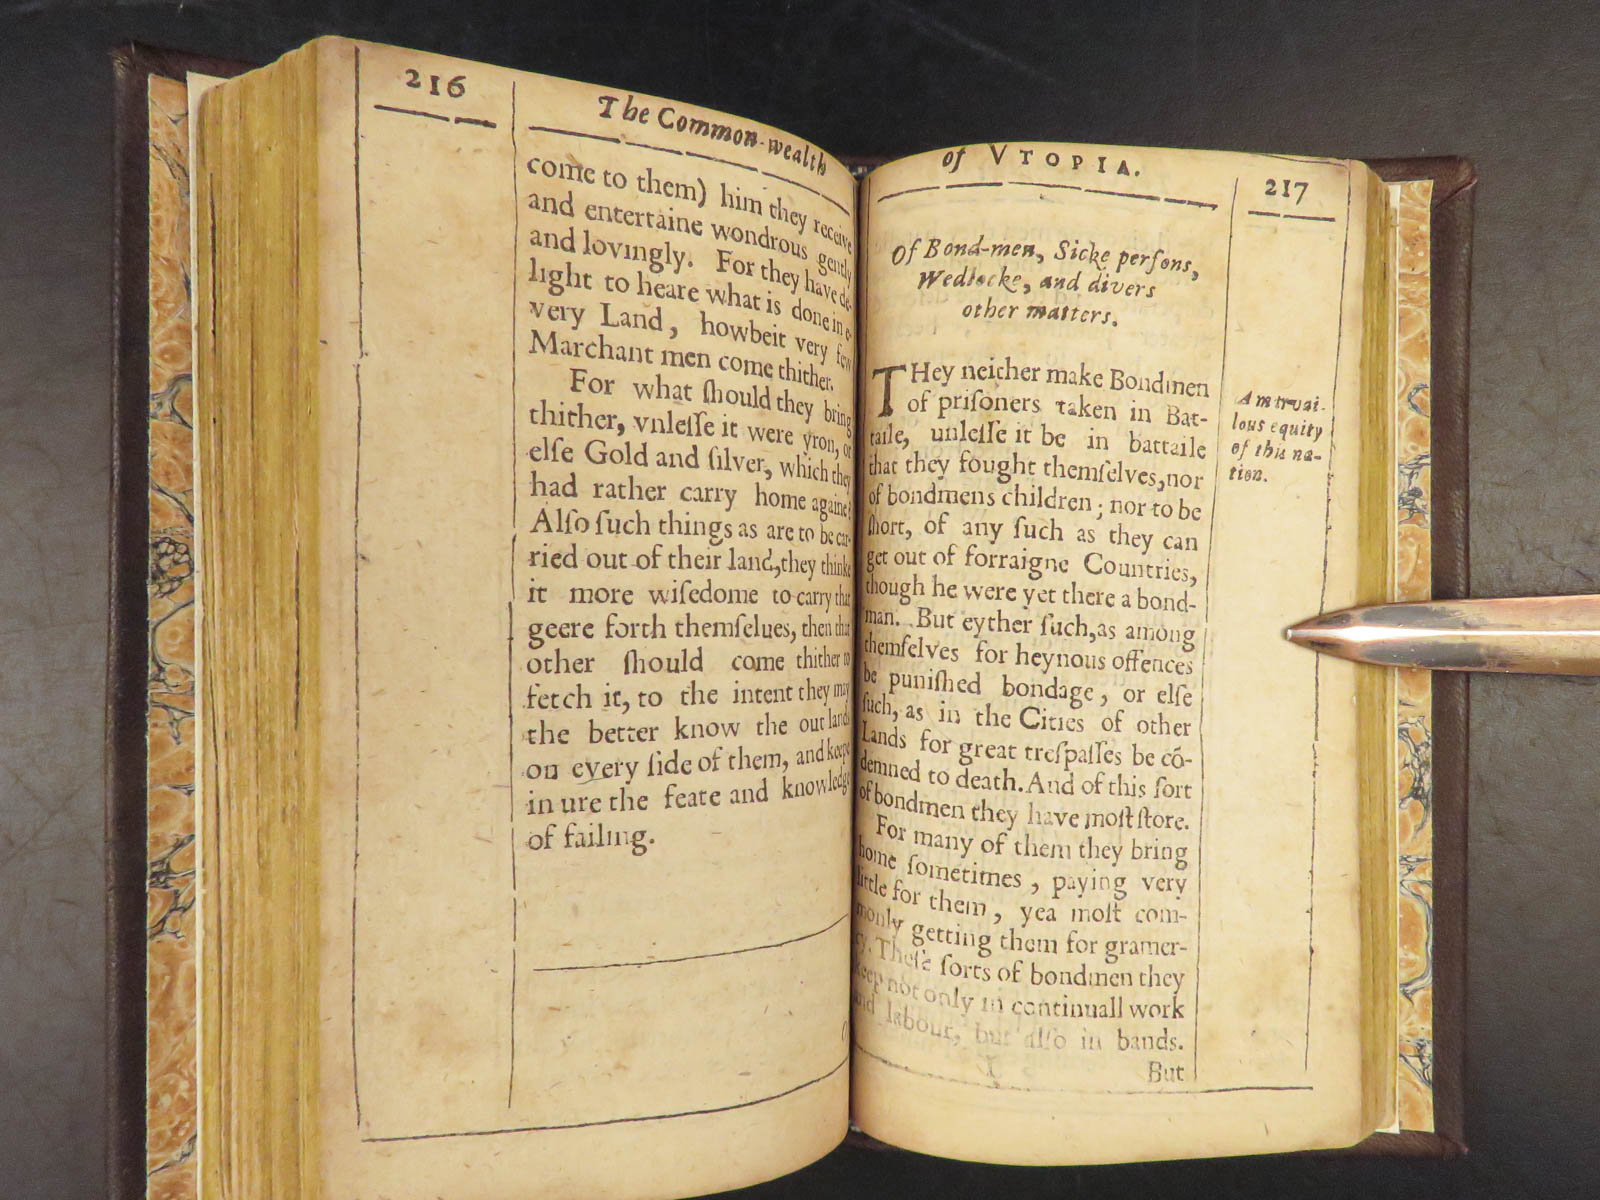 216
The Common-wealth
come to them) him they receive
and entertaine wondrous gently
and lovingly. For they have de-
light to heare what is done in e-
very Land, howbeit very few
Marchant men come thither.
For what ſhould they bring
thither, vnleſſe it were yron, or
elſe Gold and ſilver, which they
had rather carry home againe?
Alſo ſuch things as are to be car-
ried out of their land, they thinke
it more wiſedome to carry that
geere forth themſelues, then that
other ſhould come thither to
fetch it, to the intent they may
the better know the out lands
on every ſide of them, and keepe
in ure the feate and knowledge
of failing.
of VTOPIA.
217
Of Bond-men, Sicke perſons,
Wedlocke, and divers
other matters.
THey neither make Bondmen
of priſoners taken in Bat-
taile, unleſſe it be in battaile
that they fought themſelves, nor
of bondmens children; nor to be
ſhort, of any ſuch as they can
get out of forraigne Countries,
though he were yet there a bond-
man. But eyther ſuch, as among
themſelves for heynous offences
be puniſhed bondage, or elſe
ſuch, as in the Cities of other
Lands for great treſpaſſes be cõ-
demned to death. And of this ſort
of bondmen they have moſt ſtore.
For many of them they bring
home ſometimes, paying very
little for them, yea moſt com-
monly getting them for gramer-
cy. Theſe ſorts of bondmen they
keep not only in continuall work
and labour, but alſo in bands.
But
A mervai-
lous equity
of this na-
tion.